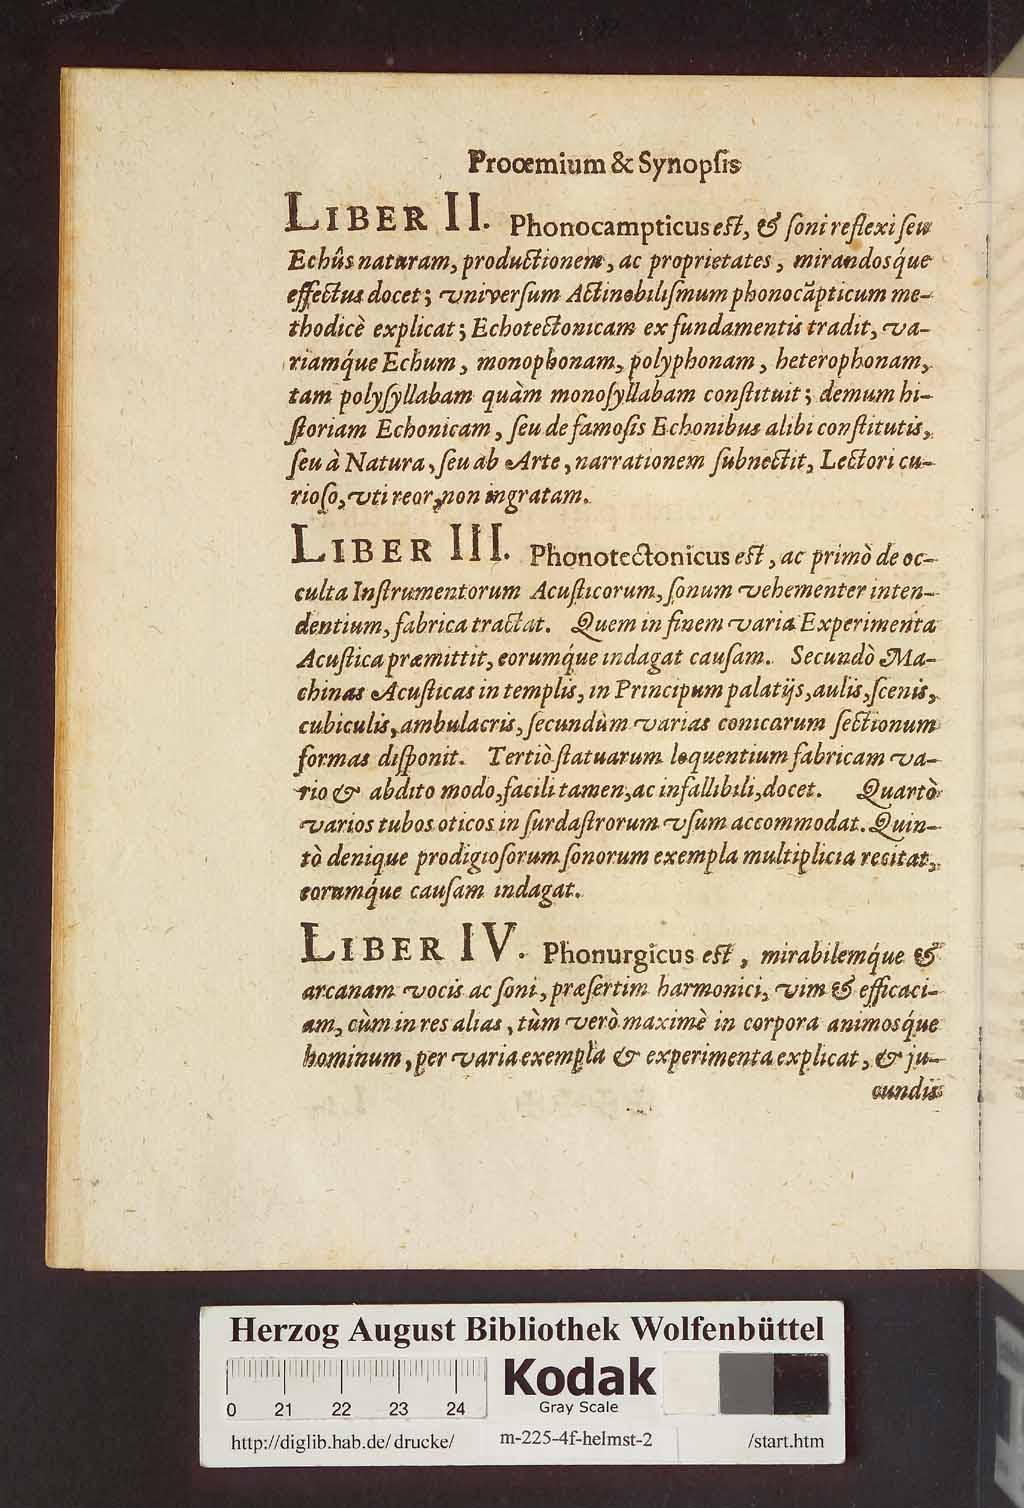 Prooemium & Synopſis
LIBER II. Phonocampticus eſt, & ſoni reflexi ſeu
Echûs naturam, productionem, ac proprietates, mirandosq́ue
effectus docet; vniverſum Actinobiliſmum phonocãpticum me-
thodicè explicat; Echotectonicam ex fundamentis tradit, va-
riamq́ue Echum, monophonam, polyphonam, heterophonam,
tam polyſyllabam quàm monoſyllabam conſtituit; demum hi-
ſtoriam Echonicam, ſeu de famoſis Echonibus alibi conſtitutis,
ſeu à Natura, ſeu ab Arte, narrationem ſubnectit, Lectori cu-
rioſo, vti reor, non ingratam.
LIBER III. Phonotectonicus eſt, ac primò de oc-
culta Inſtrumentorum Acuſticorum, ſonum vehementer inten-
dentium, fabrica tractat. Quem in finem varia Experimenta
Acuſtica præmittit, eorumq́ue indagat cauſam. Secundò Ma-
chinas Acuſticas in templis, in Principum palatijs, aulis, ſcenis,
cubiculis, ambulacris, ſecundùm varias conicarum ſectionum
formas diſponit. Tertiò ſtatuarum loquentium fabricam va-
rio & abdito modo, facili tamen, ac infallibili, docet. Quartò
varios tubos oticos in ſurdaſtrorum vſum accommodat. Quin-
tò denique prodigioſorum ſonorum exempla multiplicia recitat,
eorumq́ue cauſam indagat.
LIBER IV. Phonurgicus eſt, mirabilemq́ue &
arcanam vocis ac ſoni, præſertim harmonici, vim & efficaci-
am, cùm in res alias, tùm verò maximè in corpora animosq́ue
hominum, per varia exempla & experimenta explicat, & ju-
cundis
Herzog August Bibliothek Wolfenbüttel
Kodak
Gray Scale
0 21 22 23 24
http://diglib.hab.de/drucke/ m-225-4f-helmst-2 /start.htm